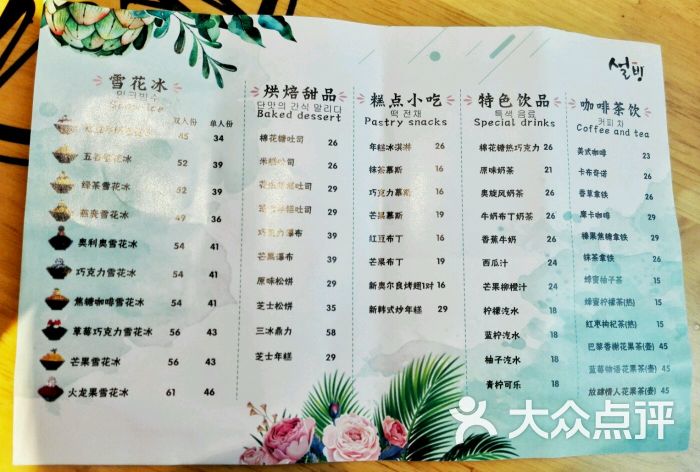 설빙
雪花冰
Snow ice
双人份 单人份
45 34
五谷雪花冰 52 39
绿茶雪花冰 52 39
燕麦雪花冰 49 36
奥利奥雪花冰 54 41
巧克力雪花冰 54 41
焦糖咖啡雪花冰 54 41
草莓巧克力雪花冰 56 43
芒果雪花冰 56 43
火龙果雪花冰 61 46
烘焙甜品
단맛의 간식 말리다
Baked dessert
棉花糖吐司 26
米糕吐司 26
花生年糕吐司 29
年糕吐司 29
巧克力瀑布 39
芒果瀑布 39
原味松饼 29
芝士松饼 35
三冰鼎力 58
芝士年糕 29
糕点小吃
떡 전채
Pastry snacks
年糕冰淇淋 26
抹茶慕斯 16
巧克力慕斯 19
芒果慕斯 19
红豆布丁 16
芒果布丁 19
新奥尔良烤翅1对 16
新韩式炒年糕 29
特色饮品
특색 음료
Special drinks
棉花糖热巧克力 26
原味奶茶 21
奥旋风奶茶 26
牛奶布丁奶茶 26
香蕉牛奶 26
西瓜汁 24
芒果柳橙汁 24
柠檬汽水 18
蓝柠汽水 18
柚子汽水 18
青柠可乐 18
咖啡茶饮
커피 차
Coffee and tea
美式咖啡 23
卡布奇诺 26
香草拿铁 26
摩卡咖啡 29
榛果焦糖拿铁 29
抹茶拿铁 26
蜂蜜柚子茶 15
蜂蜜柠檬茶(热) 15
红枣枸杞茶(热) 15
巴黎香榭花果茶(壶) 45
蓝莓物语花果茶(壶) 45
放肆情人花果茶(壶) 45
大众点评